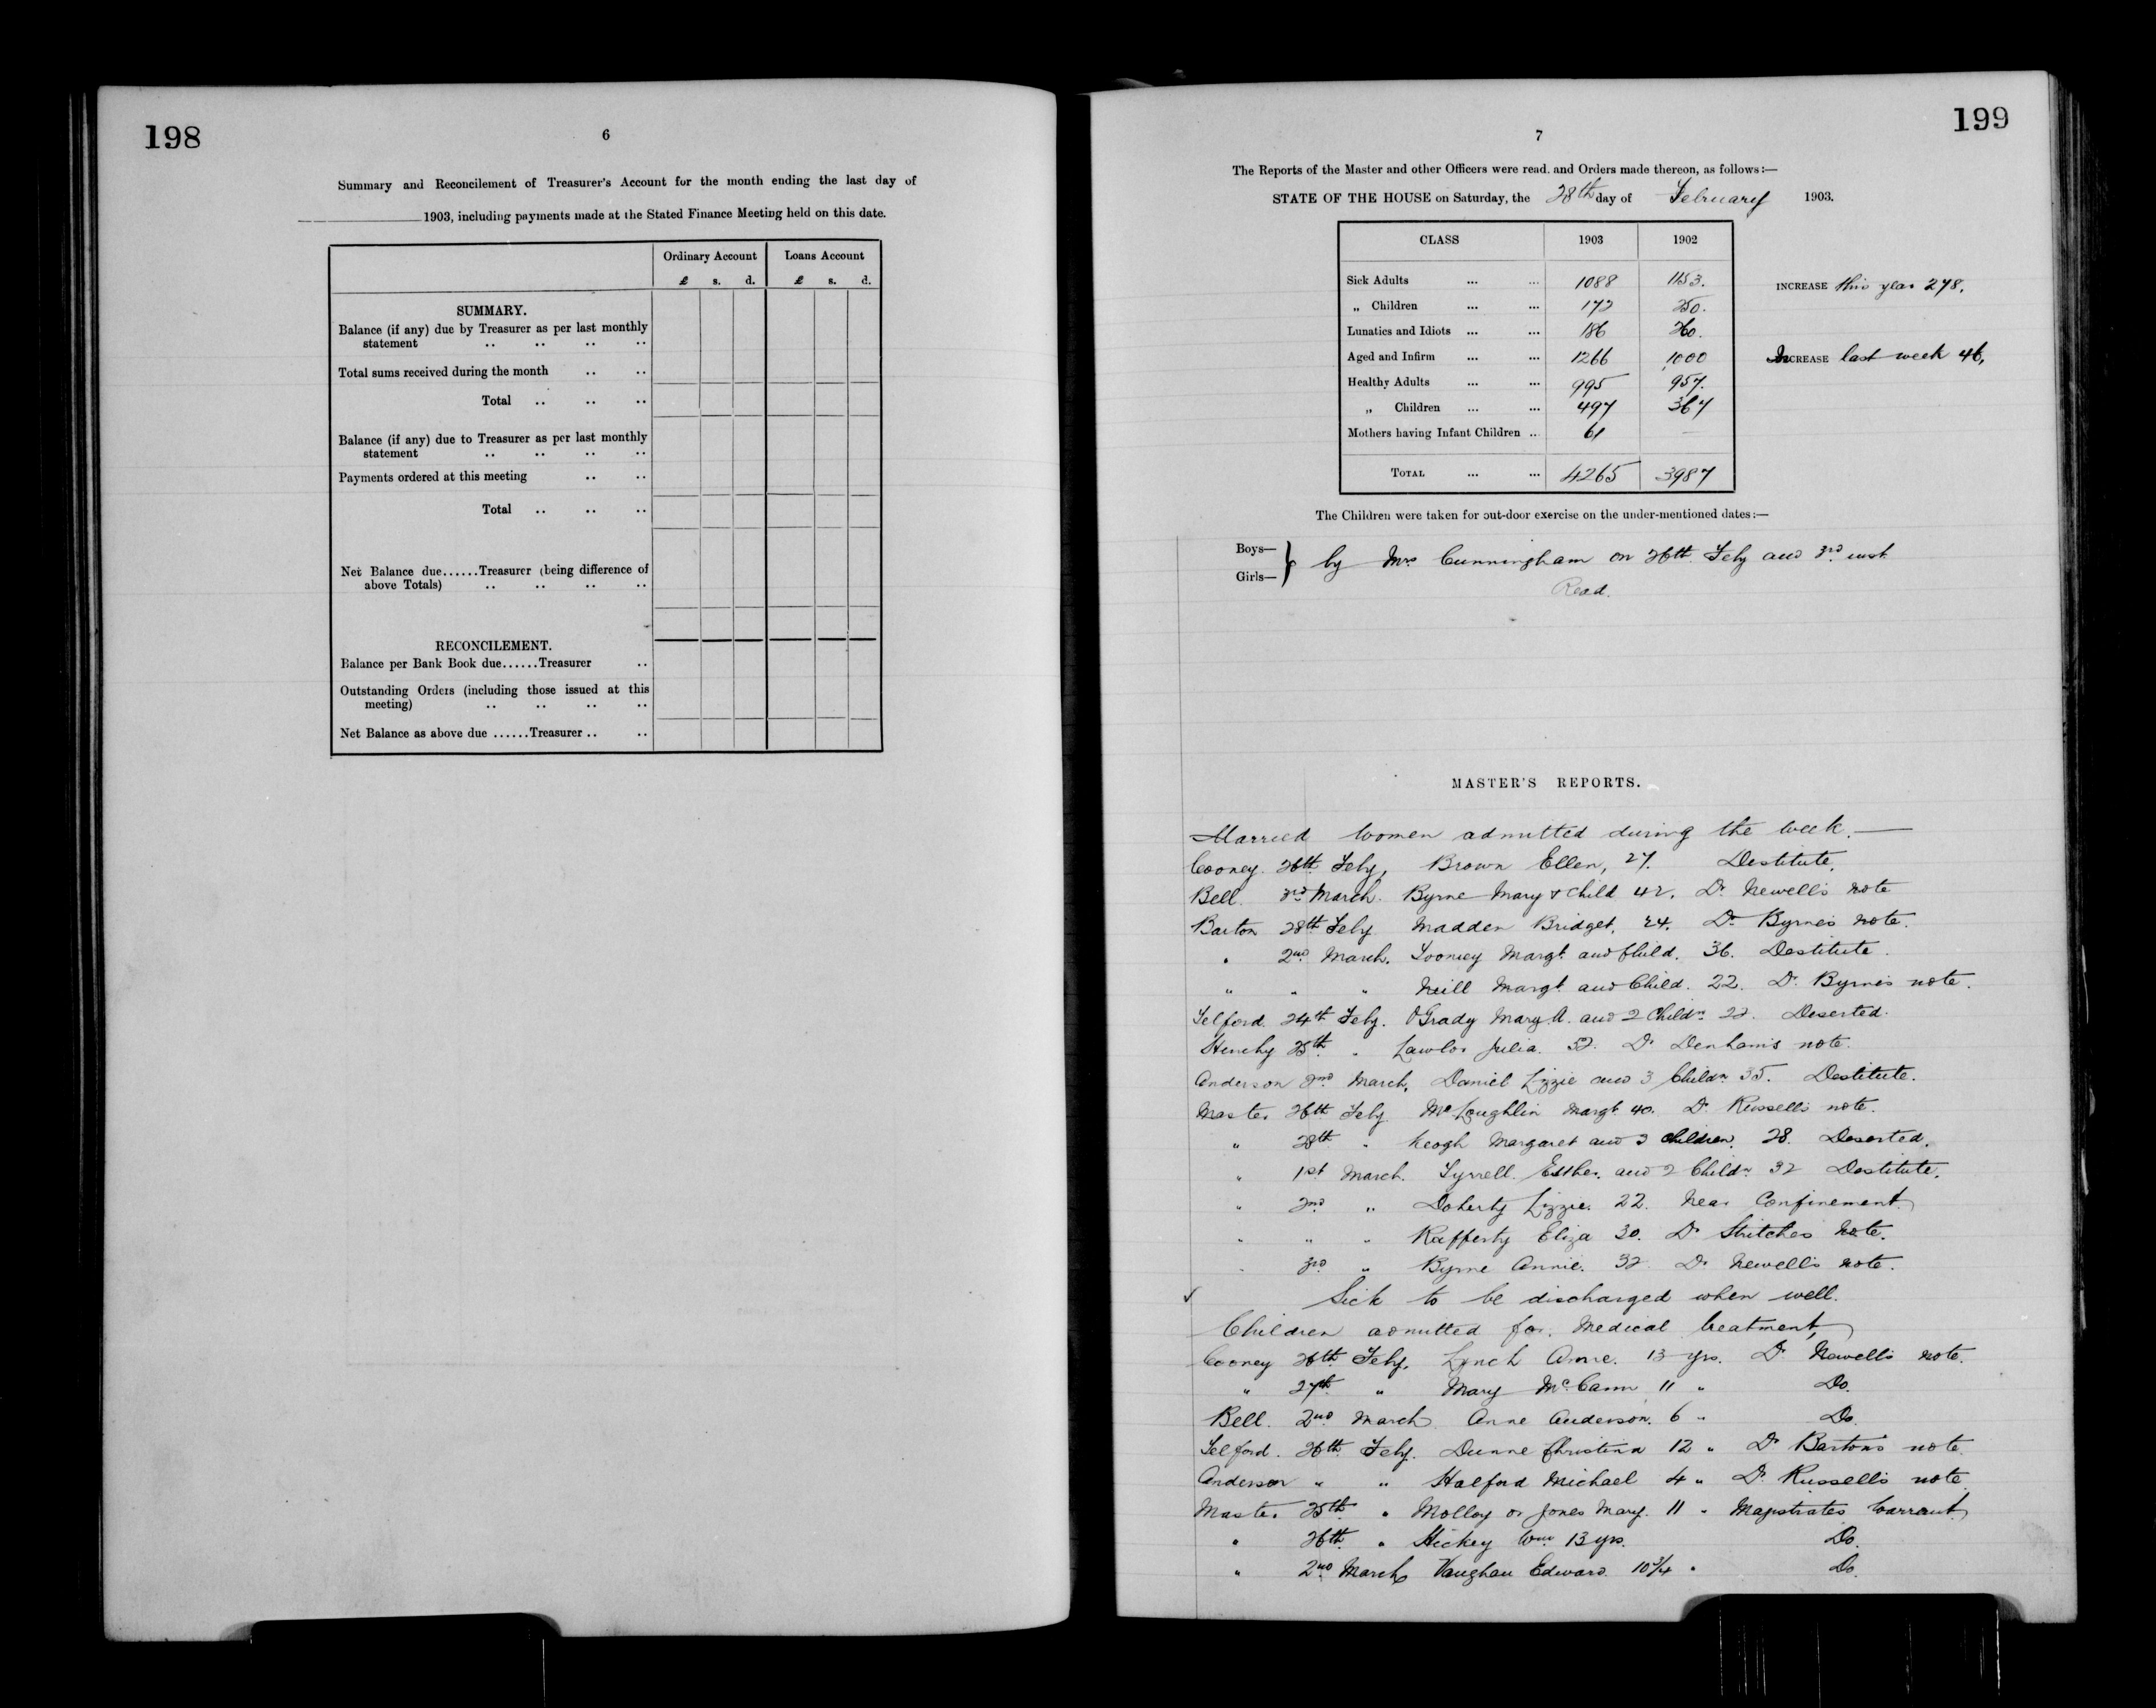 198
6
Summary and Reconcilement of Treasurer's Account for the month ending the last day of
1903, including payments made at the Stated Finance Meeting held on this date.
Ordinary Account Loans Account
£ s. d. £ s. d.
SUMMARY.
Balance (if any) due by Treasurer as per last monthly
statement .. .. .. ..
Total sums received during the month .. ..
Total .. .. ..
Balance (if any) due to Treasurer as per last monthly
statement .. .. .. ..
Payments ordered at this meeting .. ..
Total .. .. ..
Net Balance due......Treasurer (being difference of
above Totals) .. .. .. ..
RECONCILEMENT.
Balance per Bank Book due......Treasurer ..
Outstanding Orders (including those issued at this
meeting) .. .. .. ..
Net Balance as above due ......Treasurer .. ..
199
7
The Reports of the Master and other Officers were read, and Orders made thereon, as follows:—
STATE OF THE HOUSE on Saturday, the 28th day of February 1903.
CLASS 1903 1902
Sick Adults ... ... 1088 1153.
„ Children ... ... 172 250.
Lunatics and Idiots ... ... 186 260.
Aged and Infirm ... ... 1266 1000
Healthy Adults ... ... 995 957.
„ Children ... ... 497 367
Mothers having Infant Children ... 61
TOTAL ... ... 4265 3987
INCREASE this year 278.
INCREASE last week 46.
The Children were taken for out-door exercise on the under-mentioned dates:—
Boys—
Girls— } by Mrs Cunningham on 26th Feby and 3rd inst.
Read.
MASTER'S REPORTS.
Married Women admitted during the week.—
Cooney. 26th Feby, Brown Ellen, 27. Destitute.
Bell. 3rd March. Byrne Mary & Child 42. Dr Newell's note
Barton 28th Feby Madden Bridget, 24. Dr Byrne's note.
" 2nd March. Toomey Margt and Child. 36. Destitute.
" " " Neill Margt and Child. 22. Dr Byrne's note.
Telford. 24th Feby. O'Grady Mary A. and 2 Childn 22. Deserted.
Henchy 25th " Lawlor Julia. 52. Dr Denham's note.
Anderson 2nd March, Daniel Lizzie and 3 Childn 35. Destitute.
Master 26th Feby McLoughlin Margt 40. Dr Russell's note.
" 28th " Keogh Margaret and 3 children. 28. Deserted.
" 1st March. Tyrrell. Esther. and 2 Childn 32 Destitute.
" 2nd " Doherty Lizzie. 22. Near Confinement
" " " Rafferty Eliza 30. Dr Stritches Note.
" 3rd " Byrne Annie. 32. Dr Newell's note.
Sick to be discharged when well.
Children admitted for Medical treatment,
Cooney 26th Feby. Lynch Anne. 13 yrs. Dr Newell's note.
" 27th " Mary McCann 11 " Do.
Bell. 2nd March Anne Anderson. 6 " Do.
Telford. 26th Feby. Dunne Christina 12 " Dr Barton's note
Anderson " " Halford Michael 4 " Dr Russell's note
Master 25th " Molloy or Jones Mary. 11 " Magistrates Warrant
" 26th " Hickey Wm 13 yrs. Do.
" 2nd March Vaughan Edward. 10 3/4 " Do.